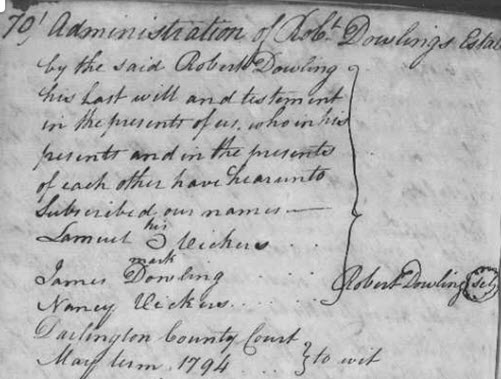 70) Administration of Robt. Dowlings Estat
by the said Robert Dowling
his last will and testament
in the presents of us, who in his
presents and in the presents
of each other have hearunto
Subscribed our names —
his
Samuel Vickers
mark
James Dowling . . . .
Robert Dowling Sel
Nancy Vickers . . . .
Darlington County Court
May term 1794 . . . } to wit